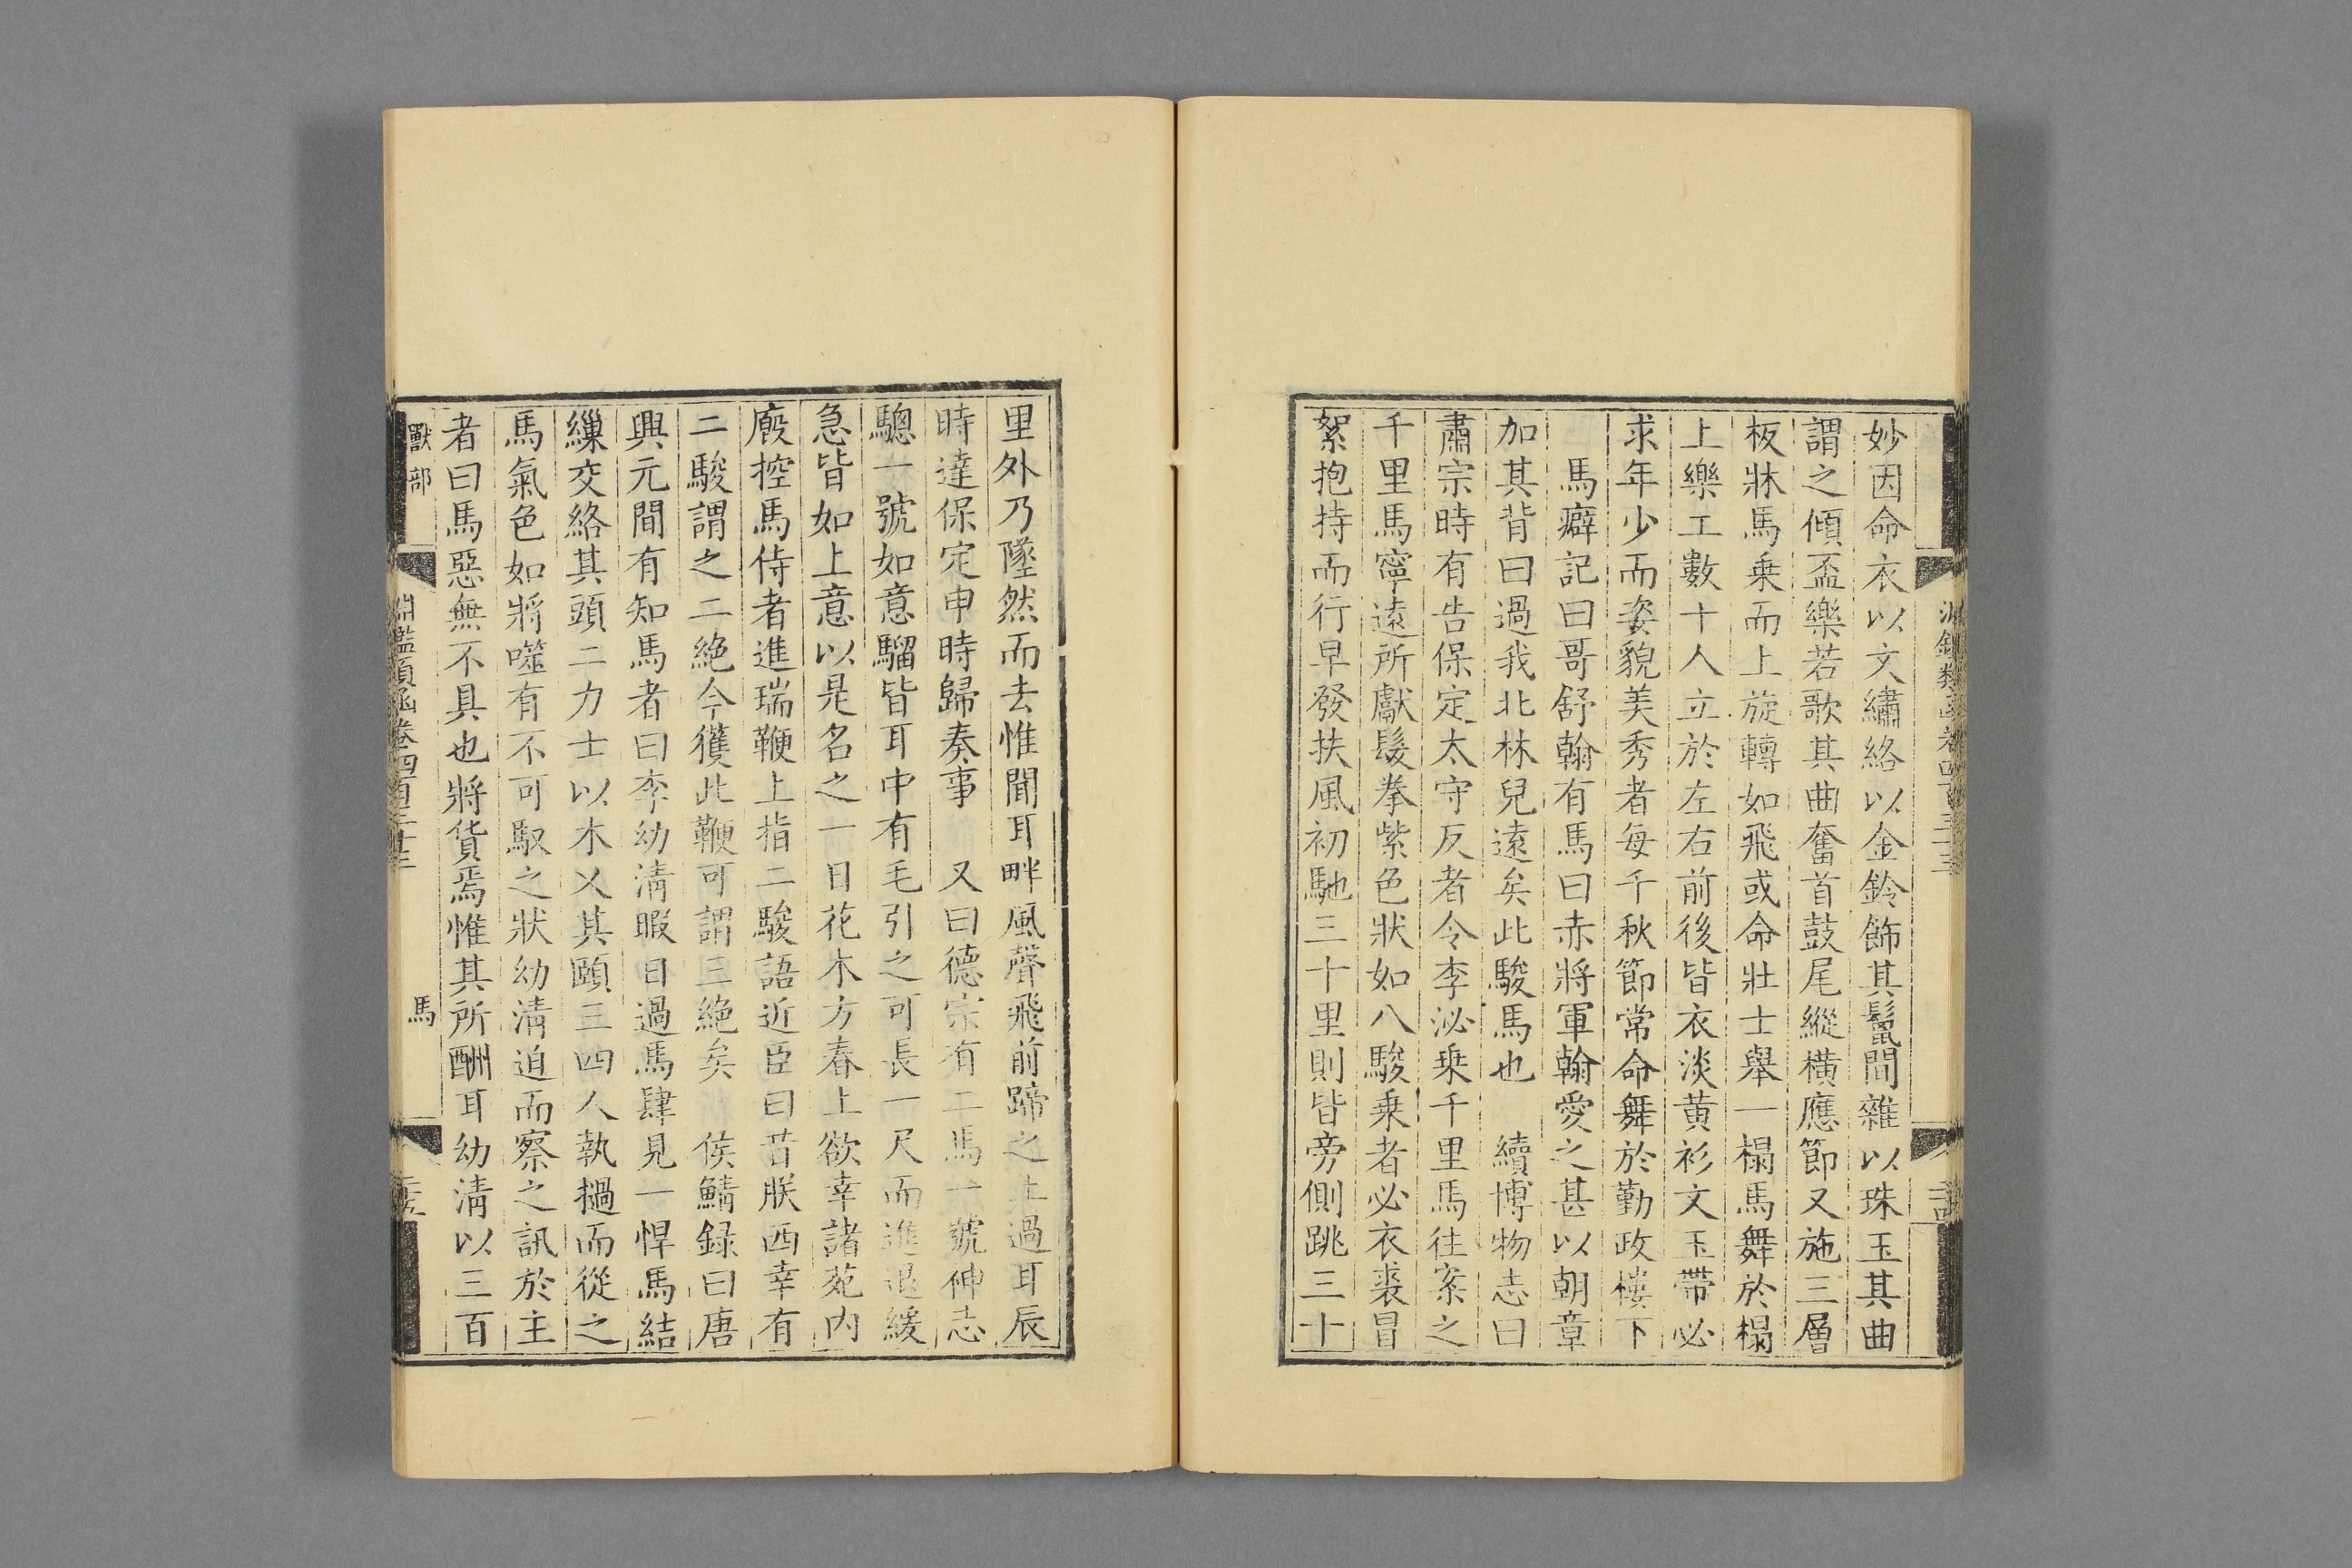 妙因命衣以文繡絡以金鈴飾其鬛間雜以珠玉其曲
謂之傾盃樂若歌其曲奮首鼓尾縱橫應節又施三層
板牀馬乗而上旋轉如飛或命壯士舉一榻馬舞於榻
上樂工數十人立於左右前後皆衣淡黄衫文玉帶必
求年少而姿貌美秀者每千秋節常命舞於勤政樓下
馬癖記曰哥舒翰有馬曰赤將軍翰愛之甚以朝章
加其背曰過我北林兒遠矣此駿馬也　續博物志曰
肅宗時有告保定太守反者令李泌乗千里馬往案之
千里馬寧遠所獻髮拳紫色狀如八駿乗者必衣裘冒
絮抱持而行早發扶風初馳三十里則皆旁側跳三十
里外乃墜然而去惟聞耳畔風聲飛前蹄之過耳辰
時達保定申時歸奏事　又曰德宗有二馬一號神志
驄一號如意騮皆耳中有毛引之可長一尺而進退緩
急皆如上意以是名之一日花木方春上欲幸諸苑内
廐控馬侍者進瑞鞭上指二駿語近臣曰昔朕西幸有
二駿謂之二絶今獲此鞭可謂三絶矣　侯鯖録曰唐
興元間有知馬者曰李幼清暇日過馬肆見一悍馬結
繅交絡其頭二力士以木乂其頤三四人執撾而從之
馬氣色如將噬有不可馭之狀幼清迫而察之訊於主
者曰馬惡無不具也將貨焉惟其所酬耳幼清以三百
獸部　淵鑑類函卷四百三十三　馬